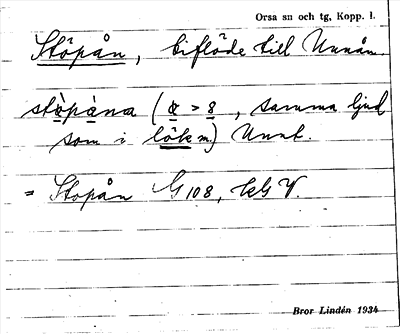 Orsa sn och tg, Kopp. l.
Stöpån, biflöde till Unnån.
stöpåna ( > 8, samma ljud
som i lök m.) Unnt.
= Stopån G 108, kG V.
Bror Lindén 1934